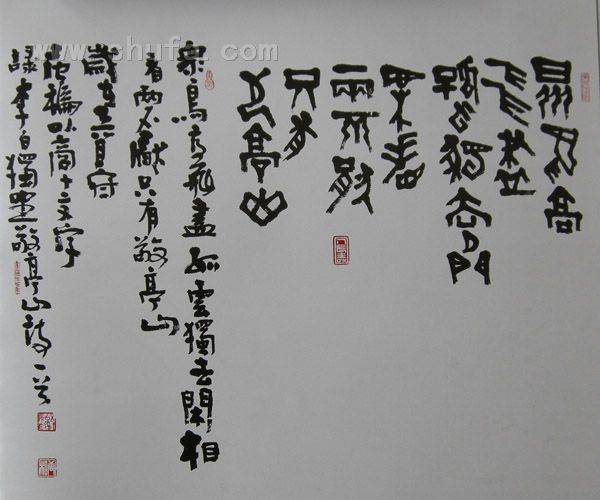 眾鳥高
飛盡
孤雲獨去閒
相看
兩不厭
只有
敬亭山
眾鳥高飛盡孤雲獨去閑相
看兩不厭只有敬亭山
歲在
以商卜文字
錄李白獨坐敬亭山詩一首